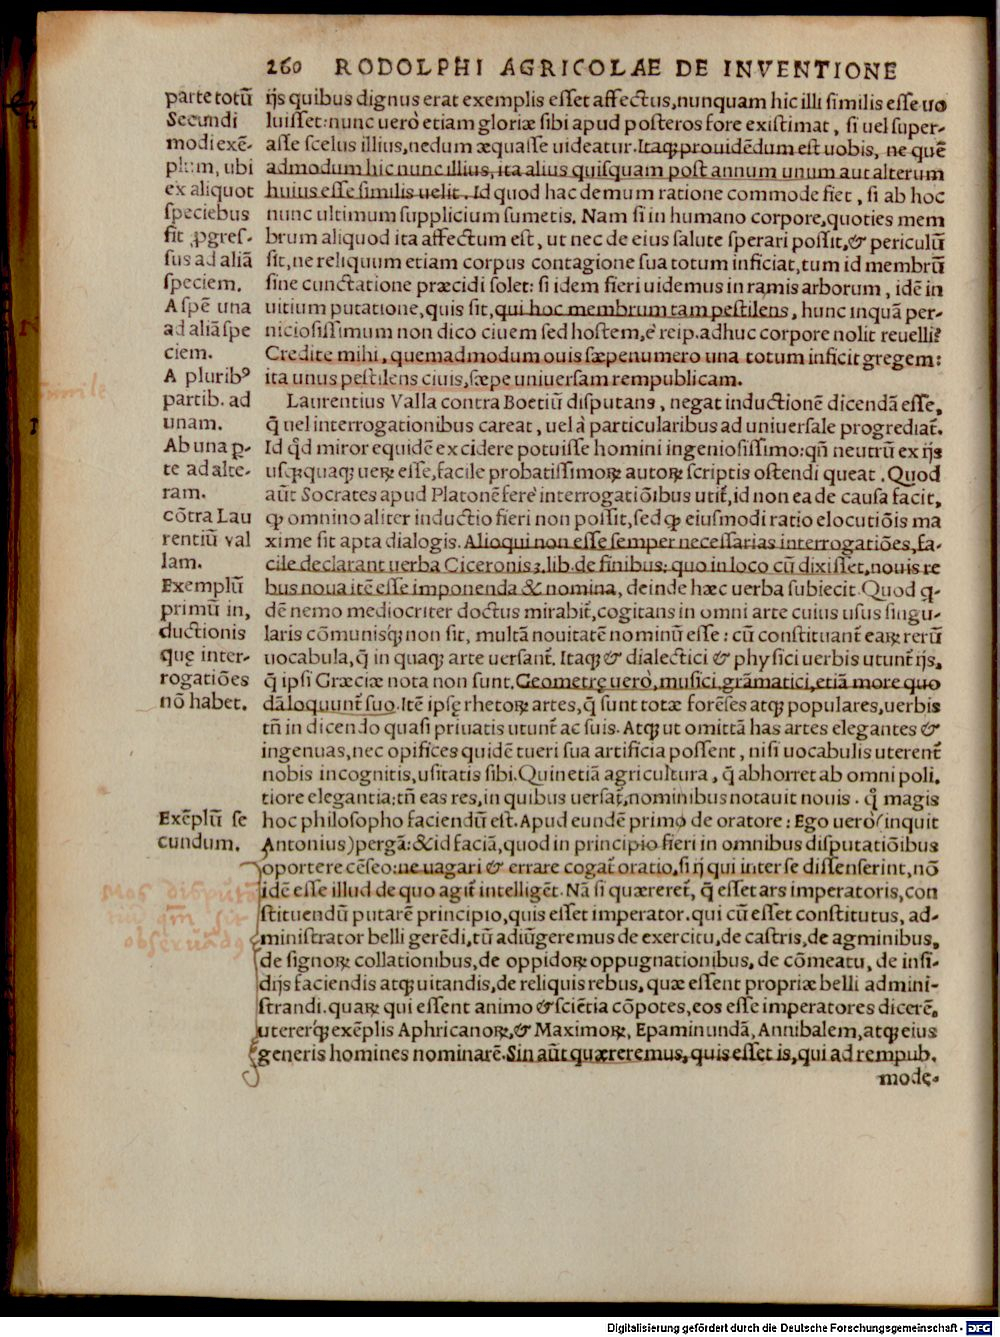 260 RODOLPHI AGRICOLAE DE INVENTIONE
parte totū
Secundi
modi exē-
plum, ubi
ex aliquot
speciebus
fit ꝓgres-
sus ad aliā
speciem.
A spē una
ad aliā spe
ciem.
A plurib⁹
partib. ad
unam.
Ab una ꝑ-
te ad alte-
ram.
cōtra Lau
rentiū val
lam.
Exemplū
primū in,
ductionis
quę inter-
rogatiōes
nō habet.
Exēplū se
cundum.
ijs quibus dignus erat exemplis esset affectus, nunquam hic illi similis esse uo
luisset: nunc uero etiam gloriæ sibi apud posteros fore existimat, si uel super-
asse scelus illius, nedum æquasse uideatur. Itaq; prouidēdum est uobis, ne quē
admodum hic nunc illius, ita alius quisquam post annum unum aut alterum
huius esse similis uelit. Id quod hac demum ratione commode fiet, si ab hoc
nunc ultimum supplicium sumetis. Nam si in humano corpore, quoties mem
brum aliquod ita affectum est, ut nec de eius salute sperari possit, & periculū
sit, ne reliquum etiam corpus contagione sua totum inficiat, tum id membrū
sine cunctatione præcidi solet: si idem fieri uidemus in ramis arborum, idē in
uitium putatione, quis sit, qui hoc membrum tam pestilens, hunc inquā per-
niciosissimum non dico ciuem sed hostem, è reip. adhuc corpore nolit reuelli?
Credite mihi, quemadmodum ouis sæpenumero una totum inficit gregem:
ita unus pestilens ciuis, sæpe uniuersam rempublicam.
Laurentius Valla contra Boetiū disputans, negat inductionē dicendā esse,
q̄ uel interrogationibus careat, uel à particularibus ad uniuersale progrediat̃.
Id qd̄ miror equidē excidere potuisse homini ingeniosissimo: qñ neutrū ex ijs
usq;quaq; ueꝝ esse, facile probatissimoꝝ autoꝝ scriptis ostendi queat. Quod
aūt Socrates apud Platonē ferè interrogatiōibus utit̃, id non ea de causa facit,
ꝙ omnino aliter inductio fieri non possit, sed ꝙ eiusmodi ratio elocutiōis ma
xime sit apta dialogis. Alioqui non esse semper necessarias interrogatiōes, fa-
cile declarant uerba Ciceronis 3. lib. de finibus: quo in loco cū dixisset, nouis re
bus noua itē esse imponenda & nomina, deinde hæc uerba subiecit. Quod q-
dē nemo mediocriter doctus mirabit̃, cogitans in omni arte cuius usus singu-
laris cōmunisq; non sit, multā nouitatē nominū esse: cū constituant̃ eaꝝ rerū
uocabula, q̄ in quaq; arte uersant̃. Itaq; & dialectici & physici uerbis utunt̃ ijs,
q̄ ipsi Græciæ nota non sunt. Geometrę uero, musici, grāmatici, etiā more quo
dā loquunt̃ suo. Itē ipsę rhetoꝝ artes, q̄ sunt totæ forēses atq; populares, uerbis
tñ in dicendo quasi priuatis utunt̃ ac suis. Atq; ut omittā has artes elegantes &
ingenuas, nec opifices quidē tueri sua artificia possent, nisi uocabulis uterent̃
nobis incognitis, usitatis sibi. Quinetiā agricultura, q̄ abhorret ab omni poli,
tiore elegantia: tñ eas res, in quibus uersat̃, nominibus notauit nouis. q̊ magis
hoc philosopho faciendū est. Apud eundē primo de oratore: Ego uero (inquit
Antonius) pergā: & id faciā, quod in principio fieri in omnibus disputatiōibus
oportere cēseo: ne uagari & errare cogat̃ oratio, si ij qui inter se dissenserint, nō
idē esse illud de quo agit̃ intelligēt. Nā si quæreret̃, q̄ esset ars imperatoris, con
stituendū putarē principio, quis esset imperator. qui cū esset constitutus, ad-
ministrator belli gerēdi, tū adiūgeremus de exercitu, de castris, de agminibus,
de signoꝝ collationibus, de oppidoꝝ oppugnationibus, de cōmeatu, de insi-
dijs faciendis atq; uitandis, de reliquis rebus, quæ essent propriæ belli admini-
strandi. quaꝝ qui essent animo & sciētia cōpotes, eos esse imperatores dicerē,
utererq; exēplis Aphricanoꝝ, & Maximoꝝ, Epaminundā, Annibalem, atq; eius
generis homines nominarē. Sin aūt quæreremus, quis esset is, qui ad rempub.
modę-
Mos disputan
observandq
Digitalisierung gefördert durch die Deutsche Forschungsgemeinschaft - DFG